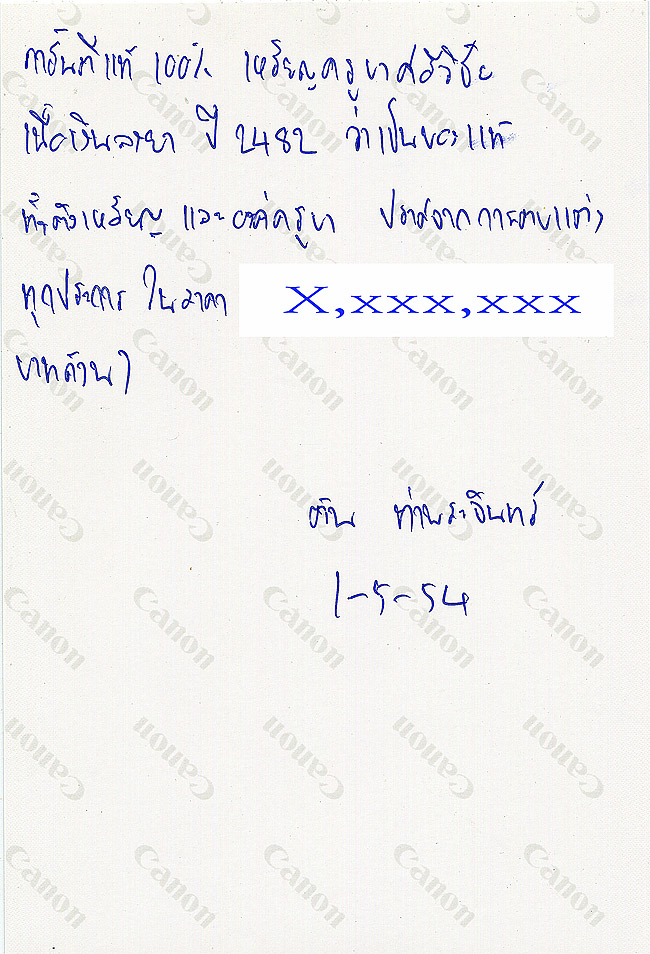 การันตีแท้ 100% เหรียญครูบาศรีวิชัย
เนื้อเงินลงยา ปี 2482 ว่าเป็นของแท้
ทั้งตัวเหรียญ และองค์ครูบา ปราศจากการตบแต่ง
ทุกประการ ในราคา X,xxx,xxx
บาทถ้วน
ท่าพระจันทร์
1-5-54